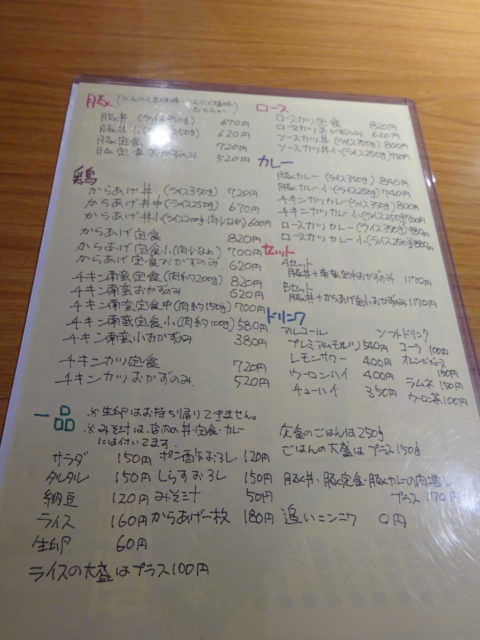 豚 (にんにく生姜味・にんにく塩味・からい)
豚丼 (ライス350g) 670円
豚丼 小(ライス250g) 620円
豚定食 720円
豚定食おかずのみ 520円
鶏
からあげ丼 (ライス350g) 720円
からあげ丼中(ライス250g) 670円
からあげ丼小(ライス200g肉少なめ) 600円
からあげ定食 820円
からあげ定食小(肉少なめ) 700円
からあげ定食おかずのみ 620円
チキン南蛮定食(肉約200g) 820円
チキン南蛮おかずのみ 620円
チキン南蛮定食中(肉約150g) 700円
チキン南蛮定食小(肉約100g) 580円
チキン南蛮小おかずのみ 380円
チキンカツ定食 720円
チキンカツおかずのみ 520円
ロース
ロースカツ定食 820円
ロースカツおかずのみ 620円
ソースカツ丼(ライス350g) 800円
ソースカツ丼小(ライス250g)
カレー
豚カレー(ライス350g) 840円
豚カレー小(ライス250g) 740円
チキンカツカレー(ライス350g) 800円
チキンカツカレー小(ライス250g) 700円
ロースカツカレー(ライス350g)
ロースカツカレー小(ライス250g)
セット
Aセット
豚丼+南蛮定中おかずのみ 1170円
Bセット
豚丼+からあげ定小おかずのみ 1170円
ドリンク
アルコール
プレミアムモルツ 540円
レモンサワー 400円
ウーロンハイ 400円
チューハイ 350円
ソフトドリンク
コーラ 100円
オレンジジュース 150円
ラムネ 150円
ウーロン茶 100円
一品
※生卵はお持ち帰りできません。
※みそ汁は、店内の丼・定食・カレー
には付いてます。
サラダ 150円 ポン酢おろし 120円
タルタル 150円 しらすおろし 150円
納豆 120円 みそ汁 50円
ライス 160円 からあげ一枚 180円
生卵 60円
ライスの大盛はプラス100円
定食のごはんは250g
ごはんの大盛はプラス150g
豚丼・豚定食・豚カレーの肉増し
プラス 170円
追いニンニク 0円